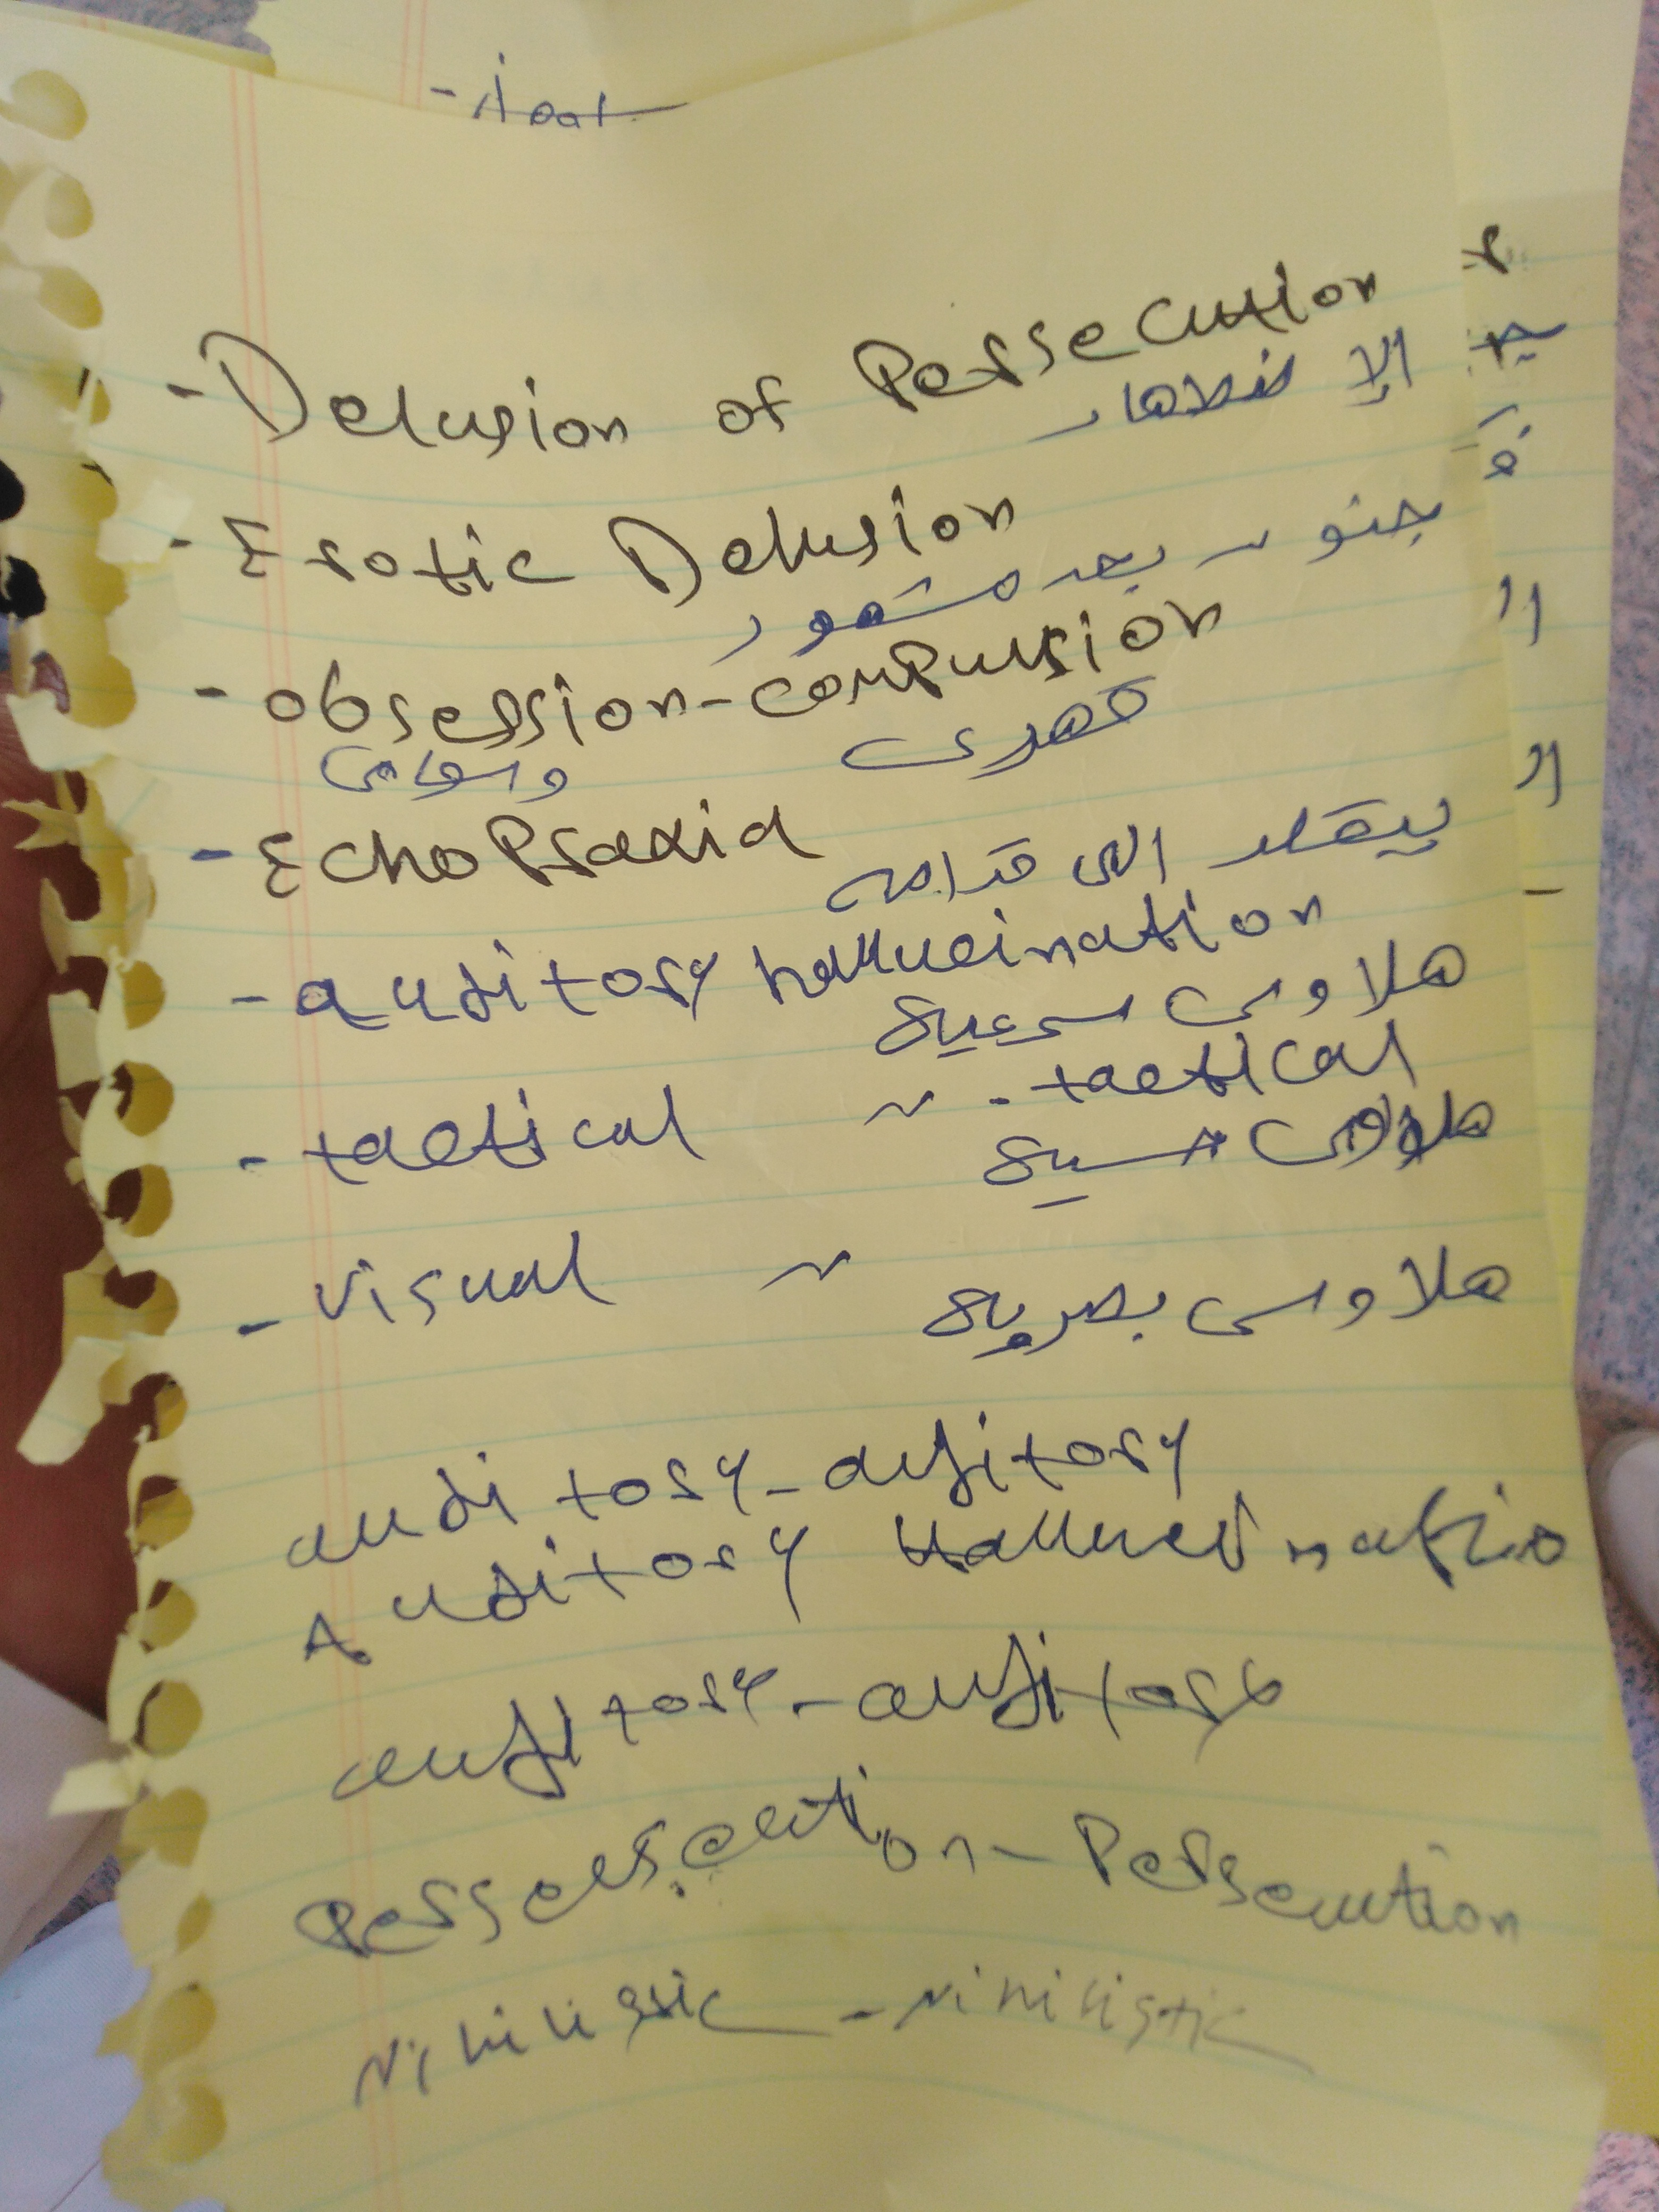 - Delusion of Persecution
الإضطهاد
- Erotic Delusion
جنون بحد مشهور
- obsession-compulsion
وسواسى قهرى
- Echo Praxia
بيقلد اللى قدامه
- auditory hallucination
هلاوس سمعية
- tactical ~ - tactical
هلاوس حسية
- visual ~ هلاوس بصرية
auditory - auditory
Auditory Hallucinatio
auditory - auditory
Persecution - Persecution
Nihilistic - Nihilistic